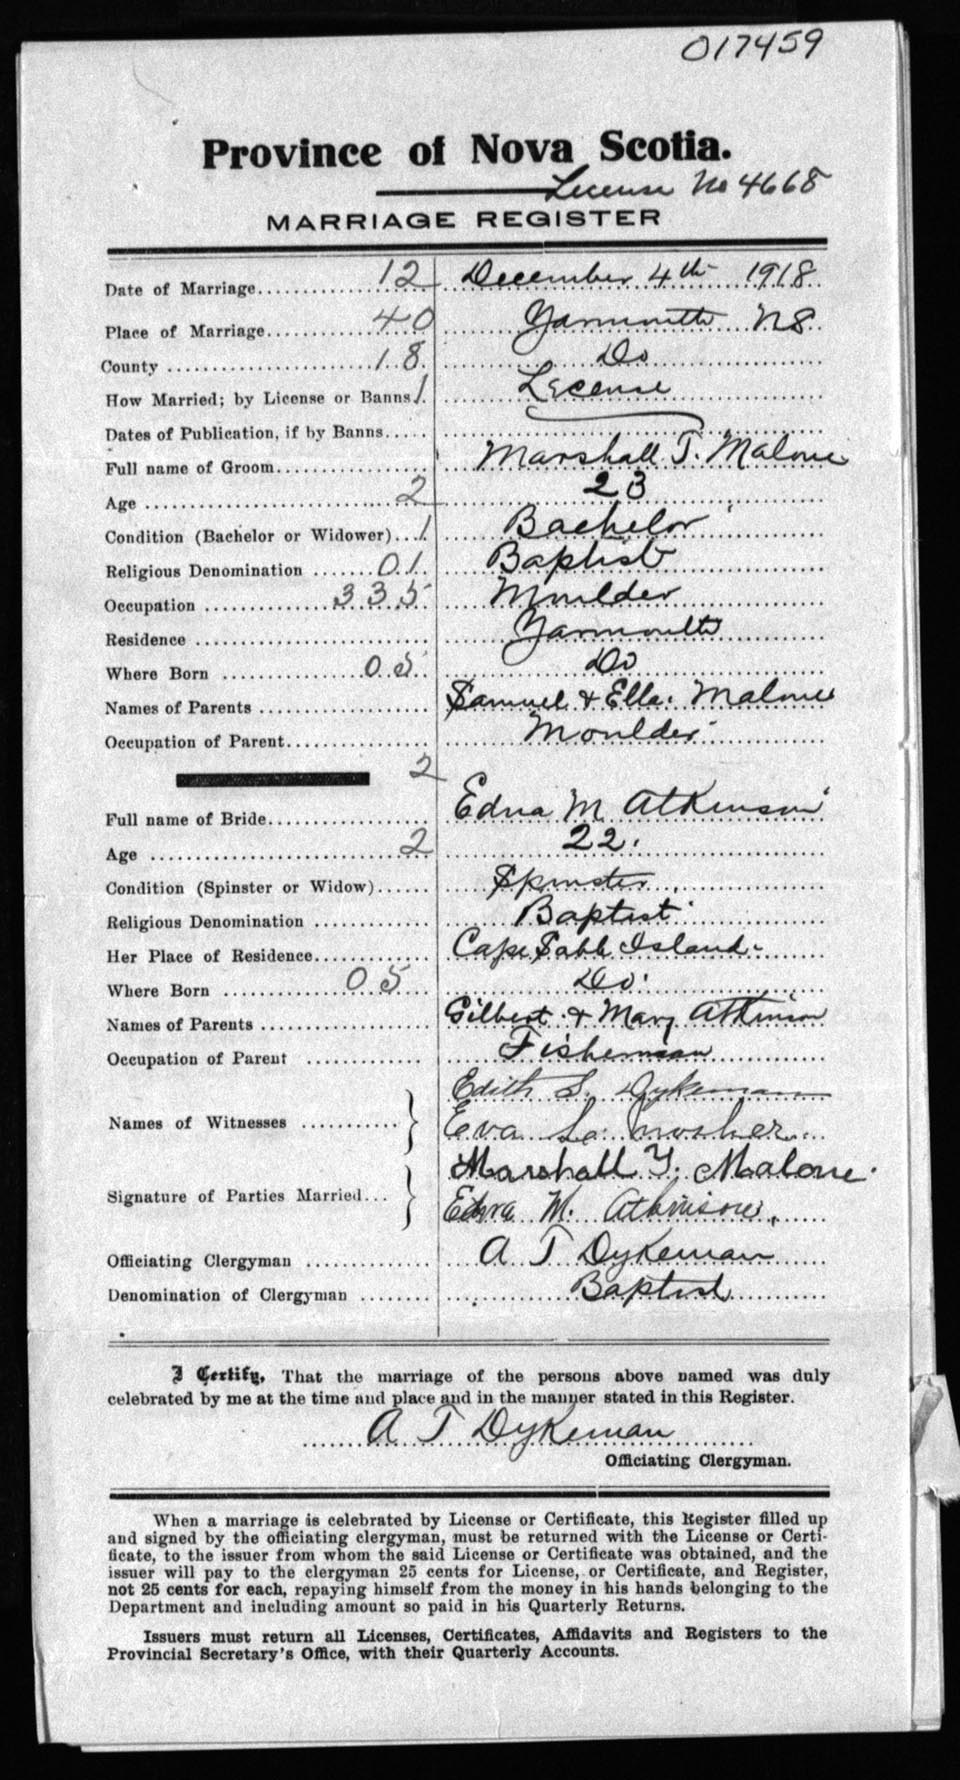 017459
Province of Nova Scotia.
License No 4668
MARRIAGE REGISTER
Date of Marriage 12 December 4th 1918
Place of Marriage 40 Yarmouth NS
County 18 Do
How Married; by License or Banns 1 License
Dates of Publication, if by Banns
Full name of Groom Marshall T. Malone
Age 2 23
Condition (Bachelor or Widower) 1 Bachelor
Religious Denomination 01 Baptist
Occupation 335 Moulder
Residence Yarmouth
Where Born 05 Do
Names of Parents Samuel & Ella Malone
Occupation of Parent Moulder
2
Full name of Bride Edna M Atkinson
Age 2 22.
Condition (Spinster or Widow) Spinster
Religious Denomination Baptist
Her Place of Residence Cape Sable Island
Where Born 05 Do
Names of Parents Gilbert & Mary Atkinson
Occupation of Parent Fisherman
Edith S. Dykeman
Names of Witnesses Eva L. Mosher
Marshall Malone
Signature of Parties Married Edna M. Atkinson
Officiating Clergyman A T Dykeman
Denomination of Clergyman Baptist
I Certify, That the marriage of the persons above named was duly
celebrated by me at the time and place and in the manner stated in this Register.
A T Dykeman
Officiating Clergyman.
When a marriage is celebrated by License or Certificate, this Register filled up
and signed by the officiating clergyman, must be returned with the License or Certi-
ficate, to the issuer from whom the said License or Certificate was obtained, and the
issuer will pay to the clergyman 25 cents for License, or Certificate, and Register,
not 25 cents for each, repaying himself from the money in his hands belonging to the
Department and including amount so paid in his Quarterly Returns.
Issuers must return all Licenses, Certificates, Affidavits and Registers to the
Provincial Secretary's Office, with their Quarterly Accounts.